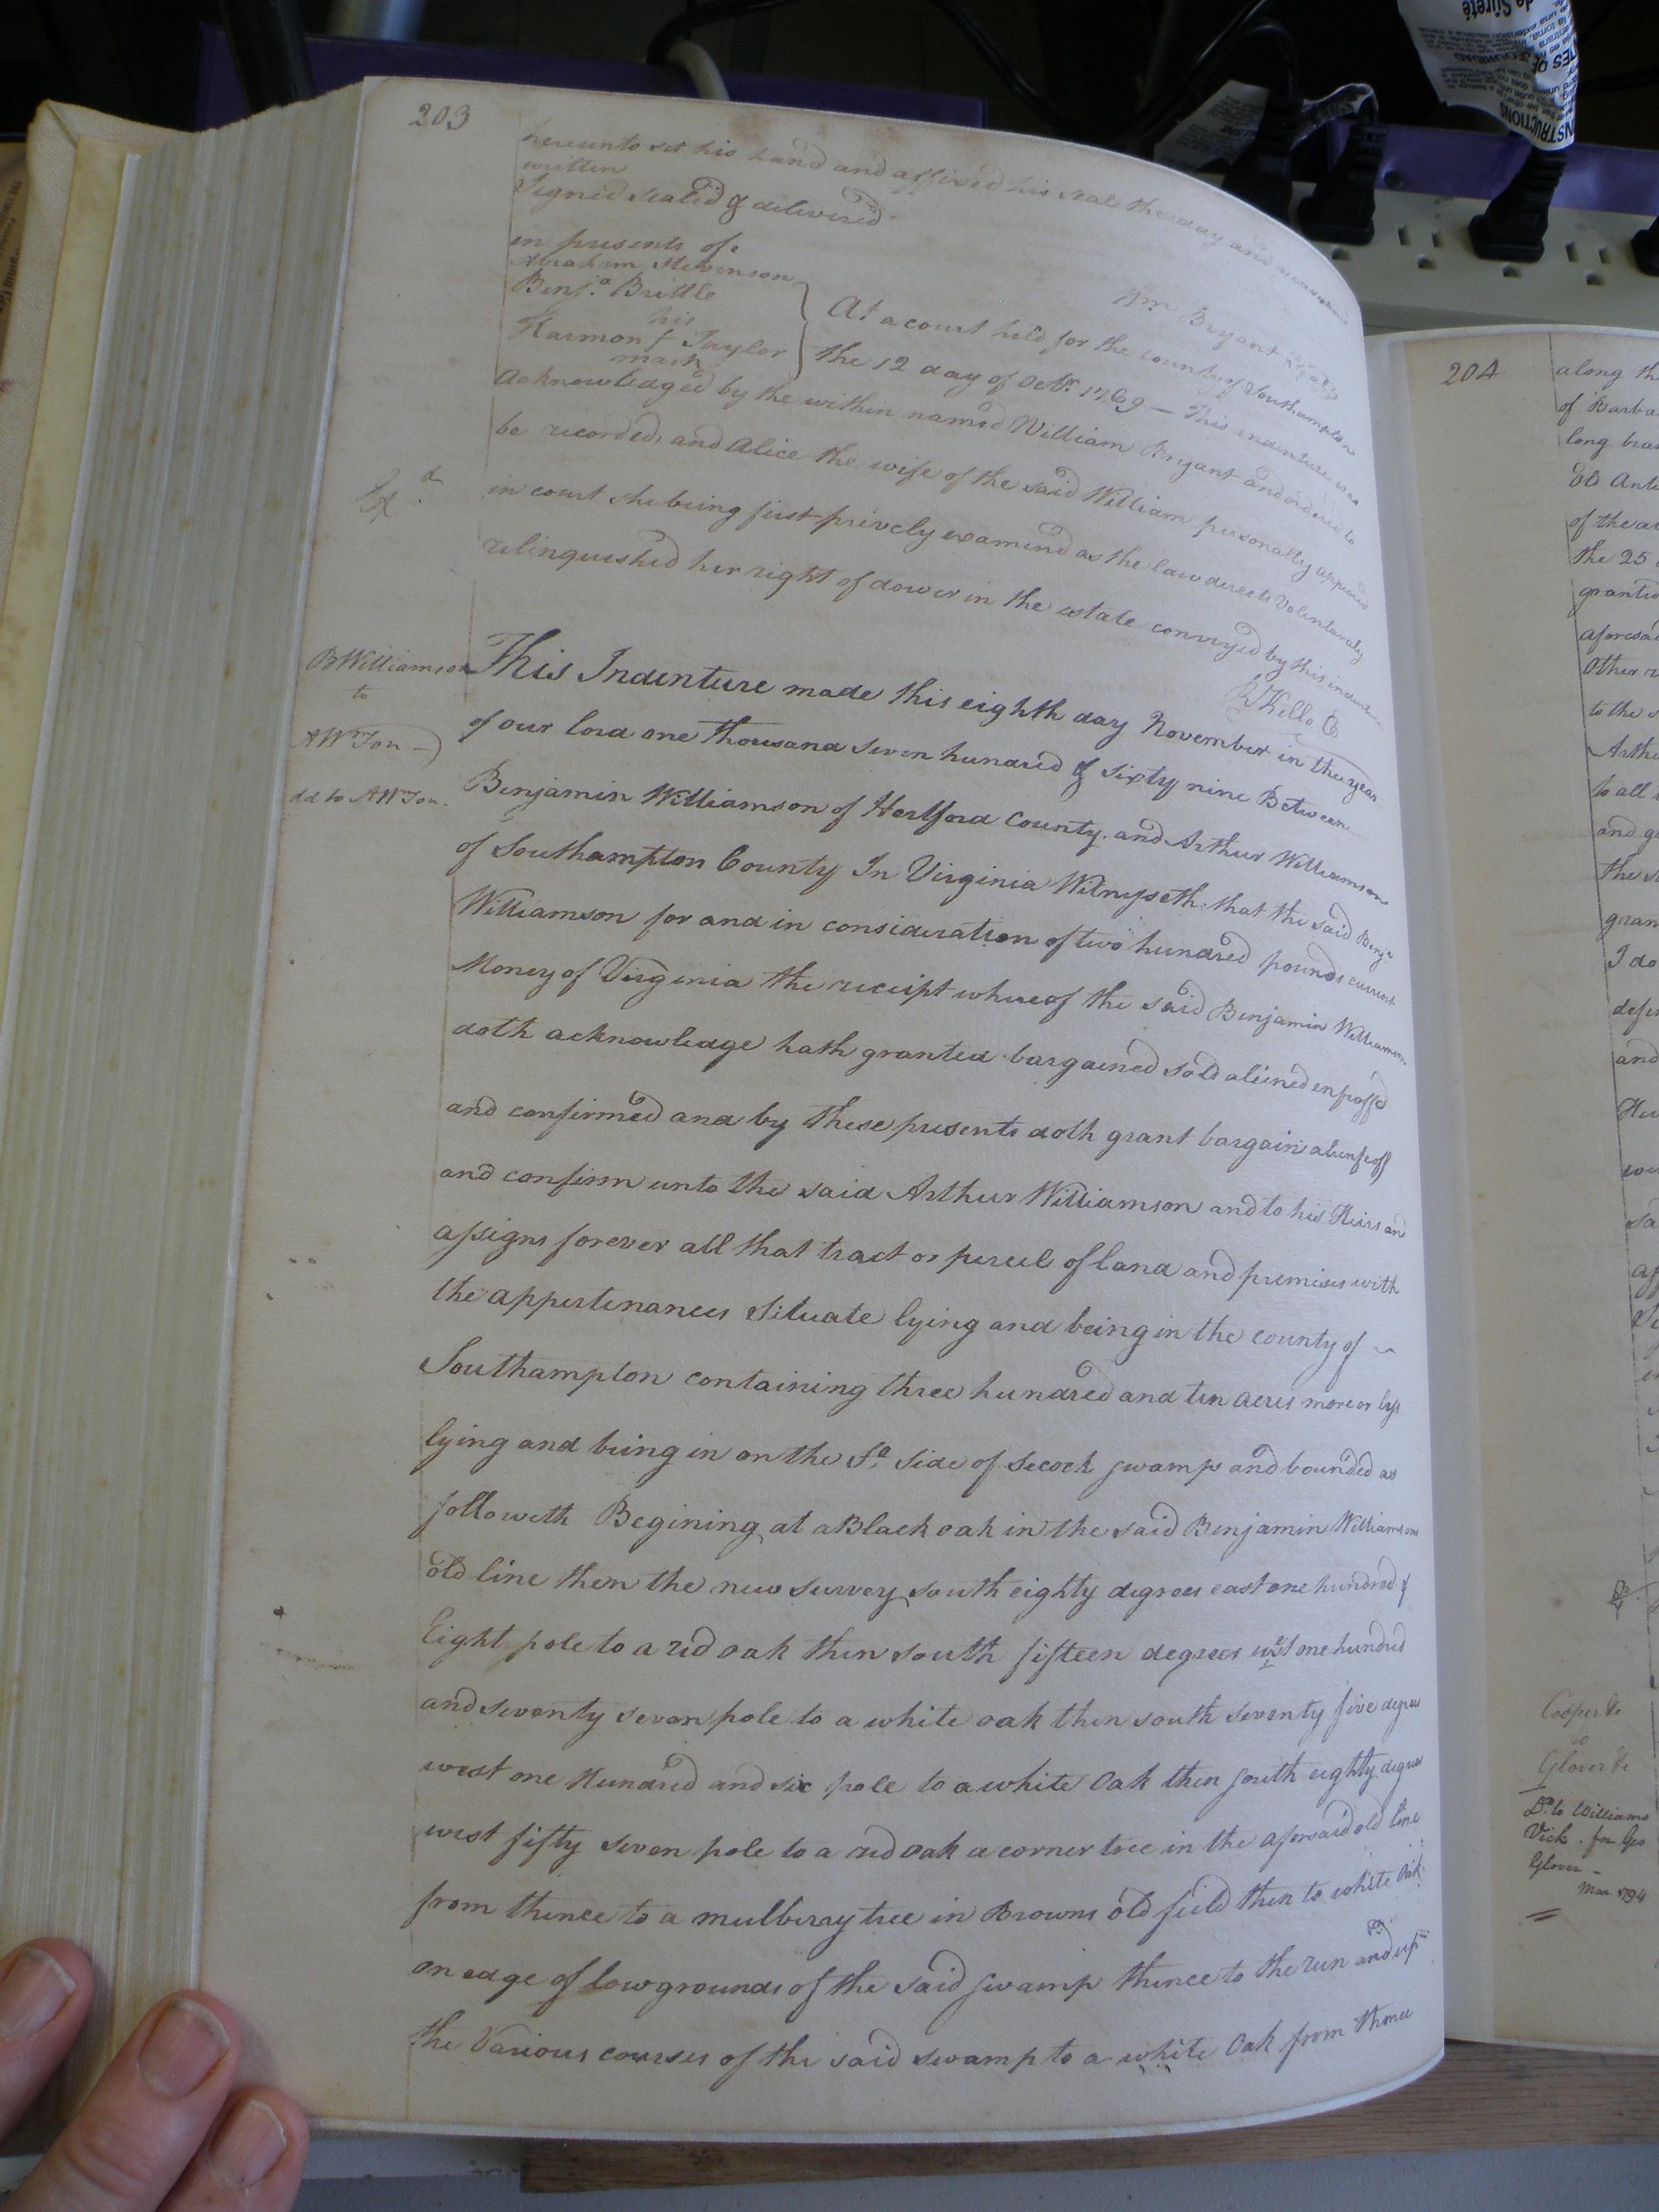 203
hereunto set his hand and affixed his seal the day and year above
written
Signed Sealed & delivered
in presents of
Wm. Bryant
Abraham Stevenson
Benja. Brittle
his
Harmon Taylor
mark
At a court held for the county of Southampton
the 12 day of Octr. 1769 — This indenture was
acknowledged by the within named William Bryant and ordered to
be recorded, and Alice the wife of the said William personally appeared
in court she being first prively examined as the law directs Voluntarily
relinquished her right of dower in the estate conveyed by this indenture
R Kello
B Williamson
to
A Wmson
dd to A Wmson.
This Indenture made this eighth day November in the year
of our lord one thousand seven hundred & sixty nine Between
Benjamin Williamson of Hertford County. and Arthur Williamson
of Southampton County In Virginia Witnesseth. that the said Benja
Williamson for and in consideration of two hundred pounds current
Money of Virginia the receipt whereof the said Benjamin Williamson
doth acknowledge hath granted bargained sold aliened enfeoffd
and confirmed and by these presents doth grant bargain alienfeoff
and confirm unto the said Arthur Williamson and to his Heirs and
assigns forever all that tract or percel of land and premises with
the appertenances Situate lying and being in the county of
Southampton containing three hundred and ten acres more or less
lying and being in on the So. side of Secock swamp and bounded as
followeth Begining at a Black oak in the said Benjamin Williamsons
old line then the new survey south eighty degrees east one hundred &
Eight pole to a red oak then south fifteen degrees west one hundred
and seventy seven pole to a white oak then south seventy five degrees
west one Hundred and six pole to a white Oak then south eighty degrees
west fifty seven pole to a red oak a corner tree in the aforesaid old line
from thence to a mulberay tree in Browns old field then to white Oak
on edge of low grounds of the said swamp thence to the run and up
the Various courses of the said swamp to a white Oak from thence
204
along th
of Barba
long bra
old Anto
of the a
the 25
grante
aforesa
Other r
to the s
Arthu
to all
and g
the s
gran
I do
defe
and
Cooper &c
to
Glover &c
Dd. to Williams
Vick. for Geo
Glover —
Mar. 1794